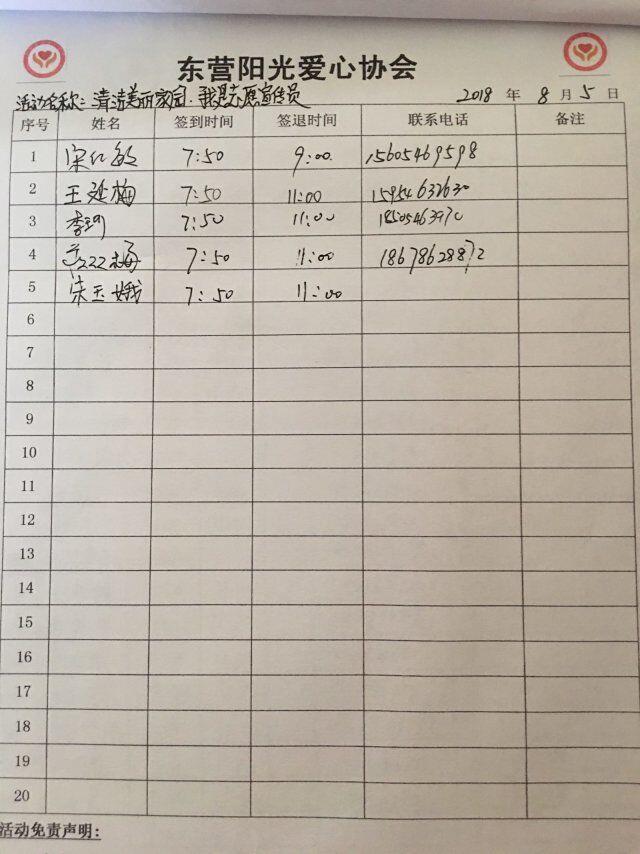 东营阳光爱心协会
活动名称:清洁美丽家园.我是志愿宣传员 2018 年 8 月 5 日
序号 姓名 签到时间 签退时间 联系电话 备注
1 宋红敏 7:50 9:00 15605469598
2 王延梅 7:50 11:00 15954632630
3 李珂 7:50 11:00
4 7:50 11:00 18678628872
5 宋玉娥 7:50 11:00
6
7
8
9
10
11
12
13
14
15
16
17
18
19
20
活动免责声明: